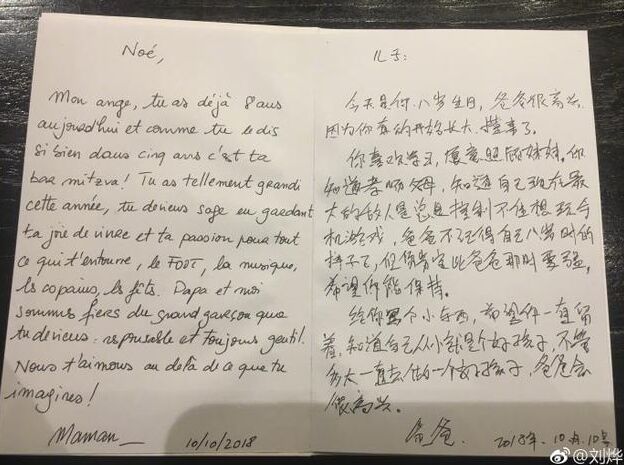 Noé,
Mon ange, tu as déjà 8 ans
aujourd'hui et comme tu le dis
si bien dans cinq ans c'est ta
bar mitzva! Tu as tellement grandi
cette année, tu deviens sage en gardant
ta joie de vivre et ta passion pour tout
ce qui t'entourre, le FOOT, la musique,
les copains, les fêts. Papa et moi
sommes fiers du grand garçon que
tu deviens: responsable et toujours gentil.
Nous t'aimons au delà de ce que tu
imagines!
Maman_ 10/10/2018
儿子:
今天是你八岁生日,爸爸很高兴
因为你真的开始长大,懂事了。
你喜欢学习,愿意照顾妹妹,你
知道孝顺父母,知道自己现在最
大的敌人是总是控制不住想玩手
机游戏,爸爸不记得自己八岁时的
样子了,但你肯定比爸爸那时要强,
希望你能保持。
给你写个小东西,希望你一直留
着,知道自己从小就是个好孩子,不管
多大一直去做一个好孩子,爸爸会
很高兴。
爸爸. 2018年.10月.10号
@刘烨